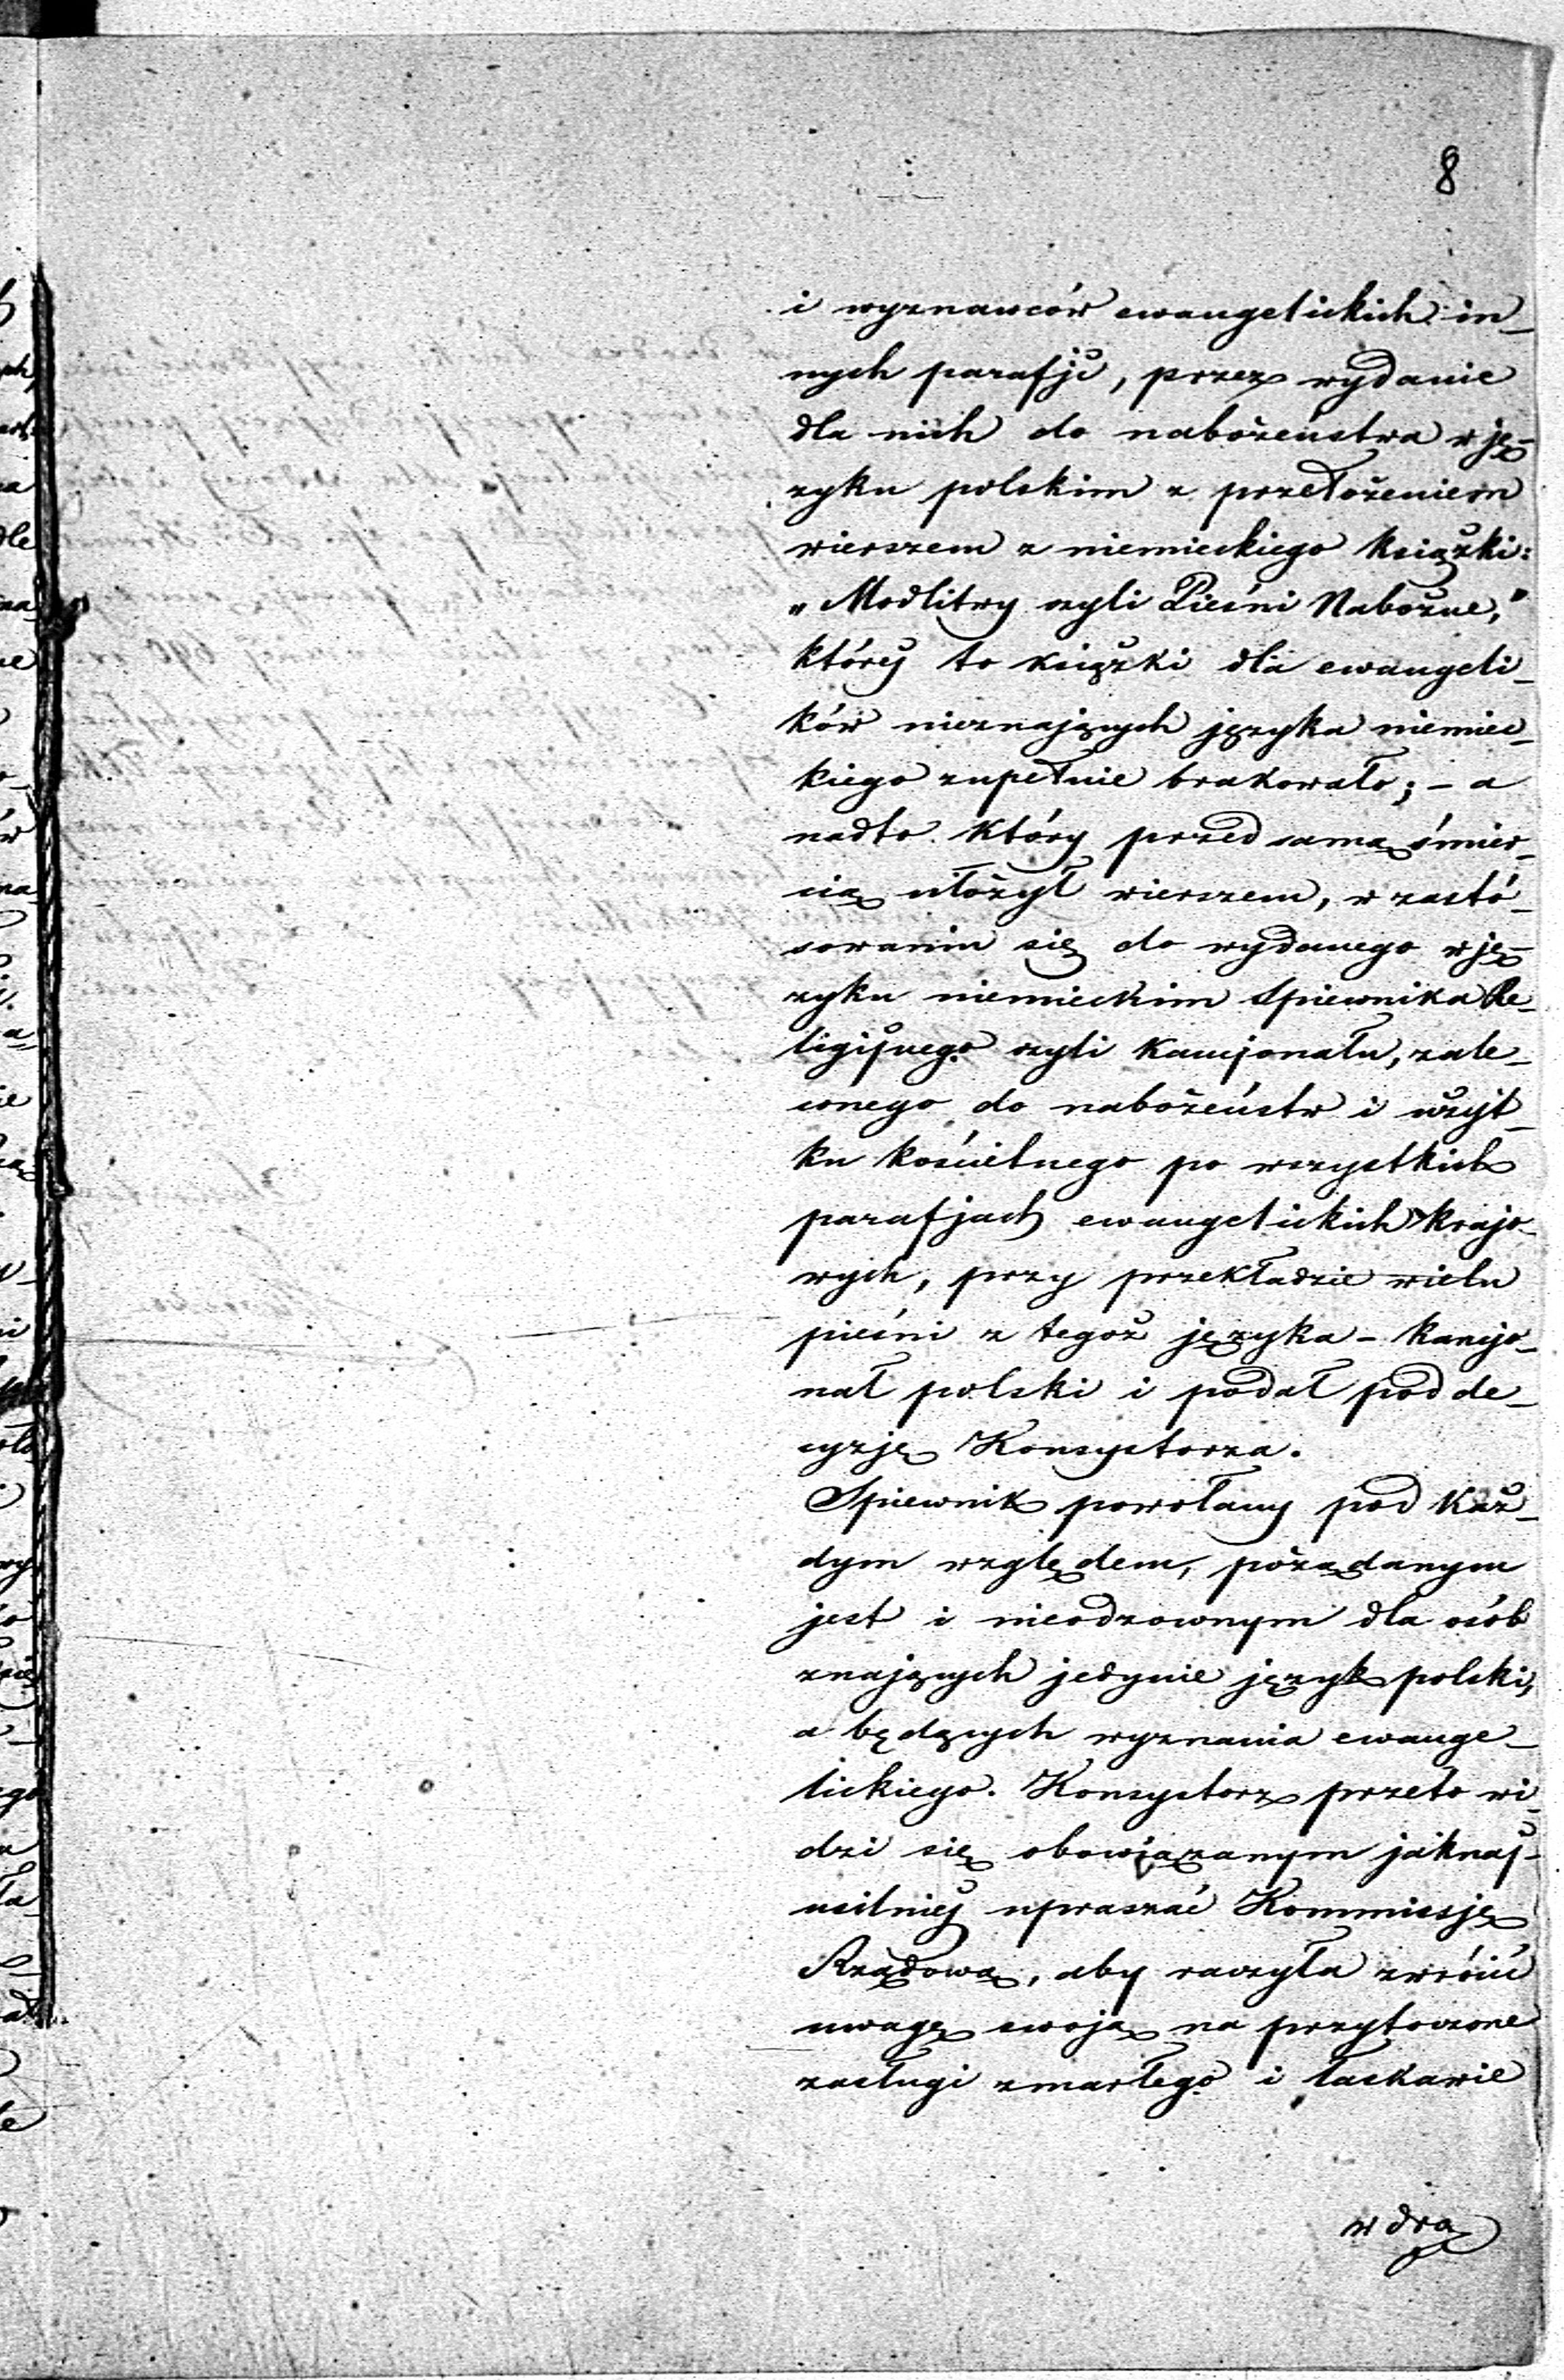 8
i wyznawców ewangelickich in_
nych parafji, przez wydanie
dla nich do nabożeństwa w ję_
zyku polskim z przełożeniem
wierszem z niemieckiego książki:
„Modlitwy czyli Pieśni Nabożne,"
któréj to książki dla ewangeli_
ków nieznających języka niemiec_
kiego zupełnie brakowało; – a
nadto który przed samą śmier_
cią ułożył wierszem, w zastó_
sowaniu się do wydanego w ję_
zyku niemieckim Spiewnika Re_
ligijnego czyli Kancjonału, zale_
conego do nabożeństw i użyt_
ku kościelnego po wszystkich
parafjach ewangelickich krajo_
wych, przy przekładzie wielu
pieśni z tegoż języka – kancjo_
nał polski i podał pod de_
cyzję Konsystorza.
Spiewnik powołany pod każ_
dym względem, pożądanym
jest i nieodzownym dla osób
znających jedynie język polski,
a będących wyznania ewange_
lickiego. Konsystorz przeto wi_
dzi się obowiązanym jaknaj_
usilniéj upraszać Kommissję
Rządową, aby raczyła zwrócić
uwagę swoją na przytoczone
zasługi zmarłego i łaskawie
w dro